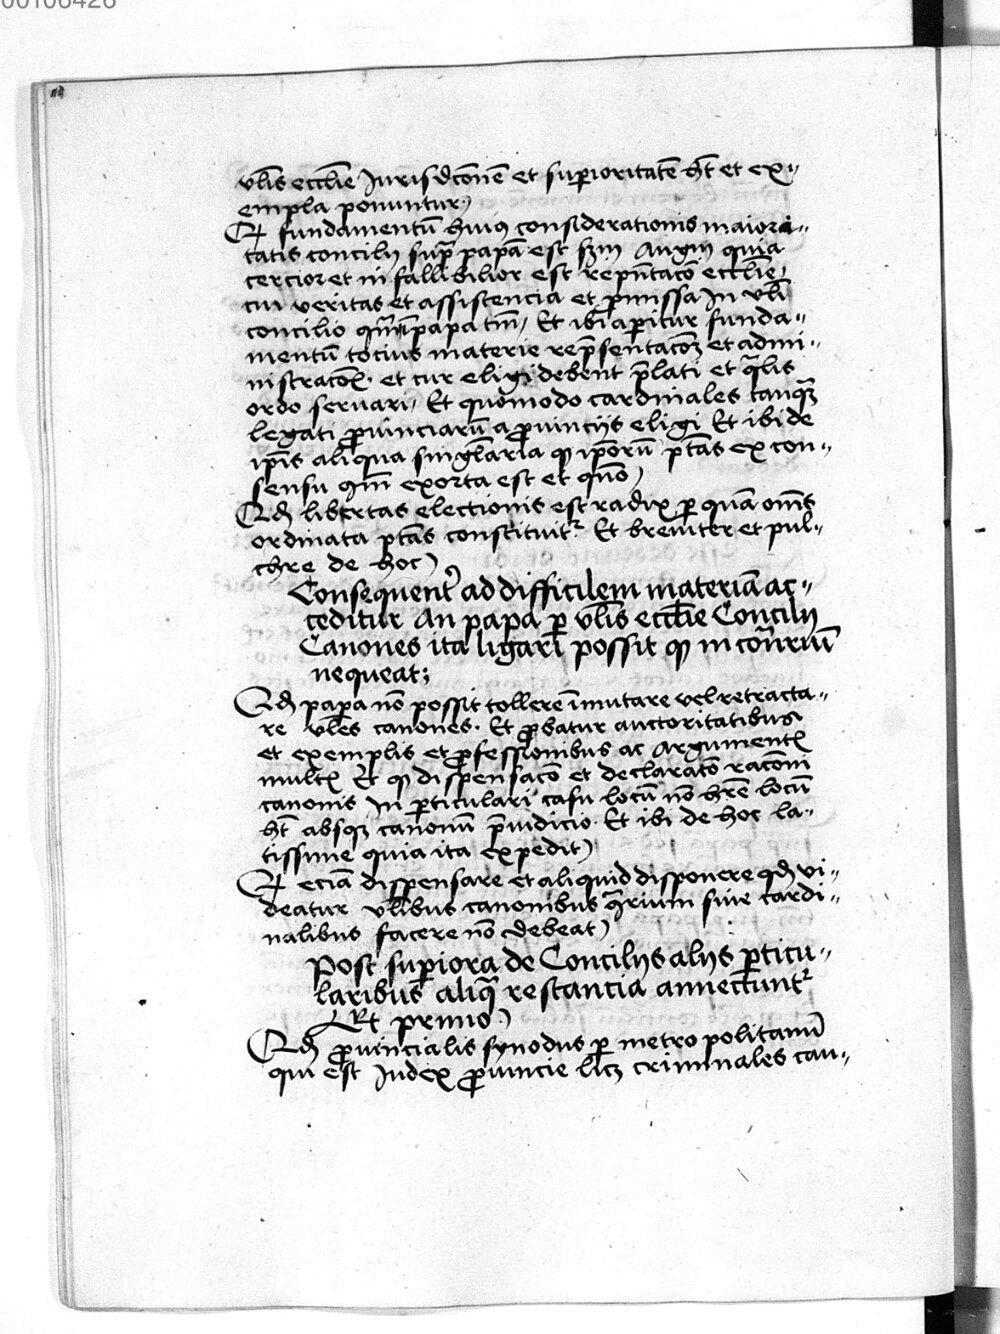 00106426
vl̅is eccl̅ie Jurisdcōnē et suꝑioritatē h̅t et ex-
empla ponuntur)
Et fundamentū huiꝯ considerationis maiori-
tatis concilij sup̅ papā est scd̅m Augm̅ quia
cercior et in fallibilior est rep̅ntacō eccl̅ie,
cui veritas et assistencia et ꝓmissa In vl̅i
concilio qm̅ papa tm̅, Et ibi aꝑitur funda-
mentū tocius materie rep̅sentacōꝫ et admi-
nistracōꝫ. et cur eligi debent p̅lati et qͣlis
ordo seruari, Et quomodo cardinales tanqͣꝫ
legati ꝓuinciarū a ꝓuinciis eligi Et ibi de
ip̅is aliqua singl̅aria ꝙ ip̅orū p̅tas ex con-
sensu om̅ exorta est et quō)
Qd̅ libertas electionis est radix ꝑ quā om̅s
ordinata p̅tas constituitͬ Et breuiter et pul-
chre de hoc)
Consequent̕ ad difficilem materiā ac-
ceditur An papa ꝑ vl̅is eccl̅ie Concilij
Canones ita ligari possit ꝙ in cōn̅rium
nequeat;
Qd̅ papa nō possit tollere īmutare vel retracta-
re vl̅es canones. Et ꝓbatur auctoritatibus
et exemplis et ꝓfessionibus ac Argumentꝭ
multꝭ Et ꝙ dispensacō et declaratō racōni
canonis In ꝑticulari casu locū nō h̅re locū
h̅t absqꝫ canonū p̅iudicio. Et ibi de hoc la-
tissime quia ita expedit)
Et eciā dispensare et aliquid disponere qd̅ vi-
deatur vl̅ibus canonibus 9̅rium siue cardi-
nalibus facere nō debeat)
Post suꝑiora de Concilijs alijs ꝑticu-
laribus aliqͣ restancia annectuntͬ
Et primo)
Qd̅ ꝓuincialis synodus ꝑ metropolitanū
qui est Judex ꝓuincie lic̅ꝫ criminales cau-